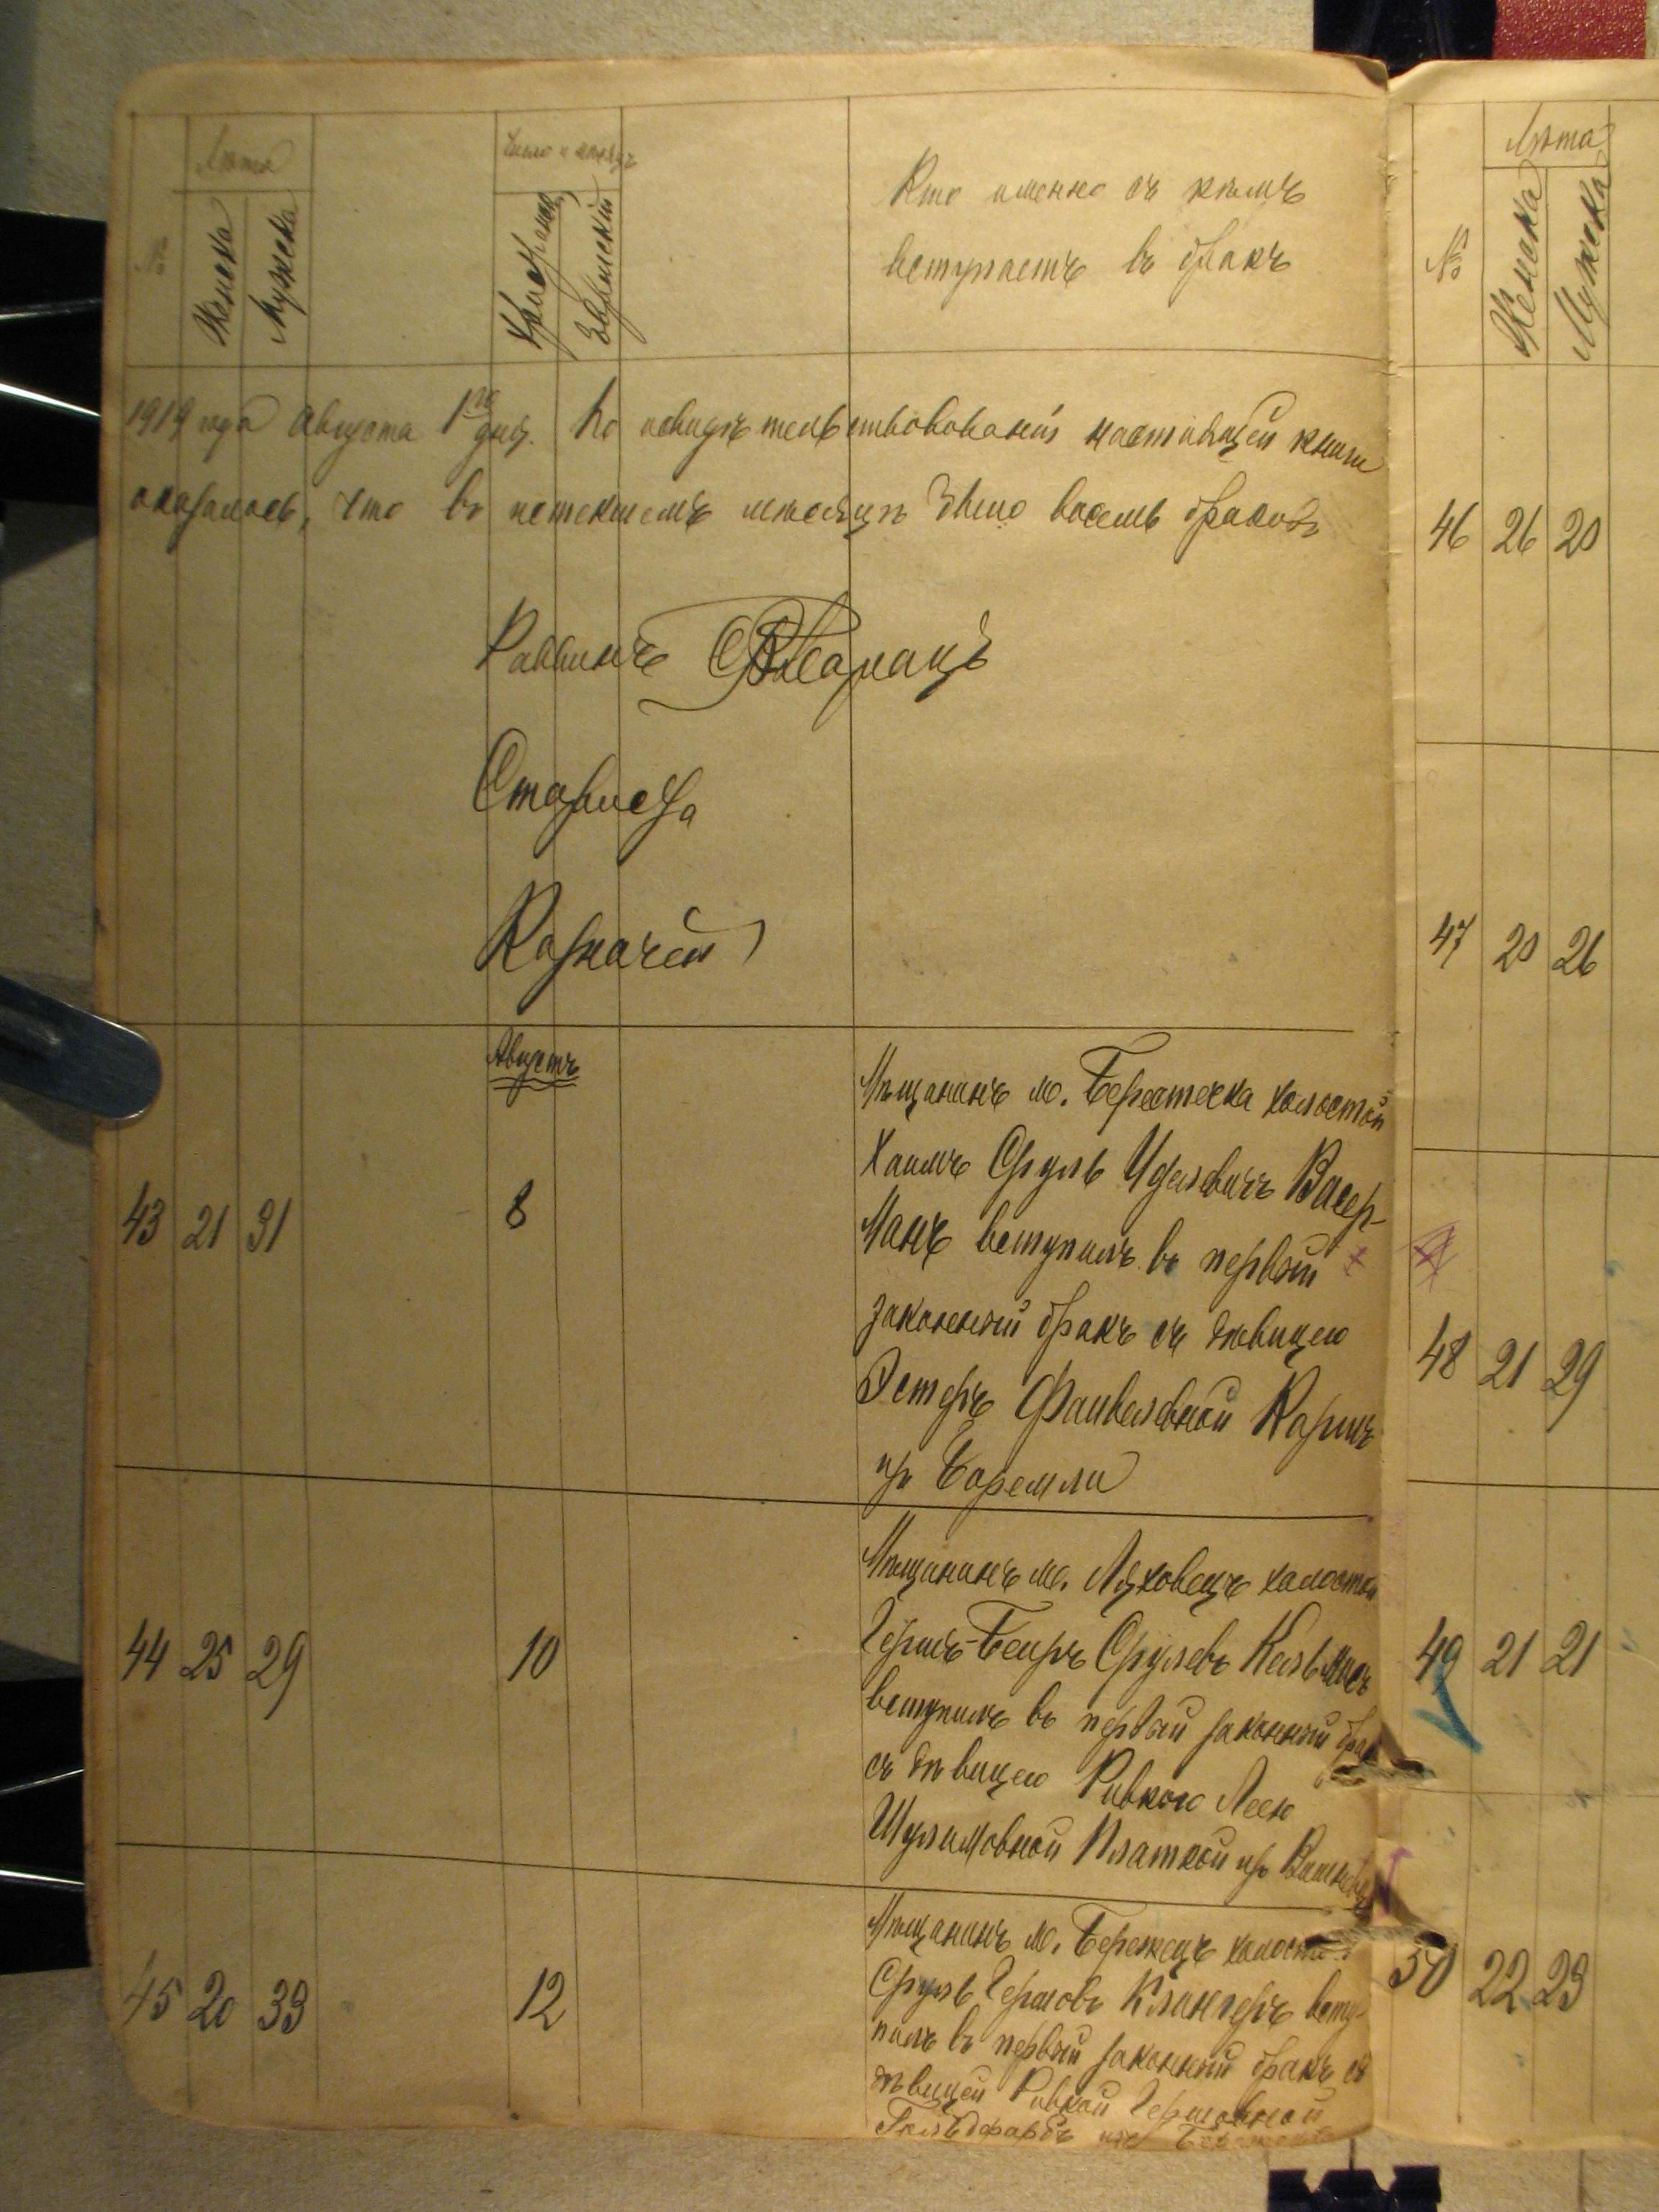 № Лѣта Число и мѣсяцъ
Женска Мужска Христіанскій Еврейскій
Кто именно съ кѣмъ
вступаетъ въ бракъ
1919 года Августа 1го дня. По освидѣтельствованіи настоящей книги
оказалось, что въ истекшемъ мѣсяцѣ было восемь браковъ
Раввинъ
Староста
Казначей
Августъ
43 21 31 8
Мѣщанинъ м. Берестечка холостой
Хаимъ Сруль Иделевичъ Васер-
манъ вступилъ въ первый
законный бракъ съ дѣвицею
Эстеръ Файвелевной Корицъ
изъ Боремля
44 25 29 10
Мѣщанинъ м. Ляховецъ холостой
Гершъ-Беиръ Срулевъ
вступилъ въ первый законный бракъ
съ дѣвицею Ривкою Леею
Шулимовной Платкой изъ
45 20 33 12
Мѣщанинъ м. Бережецъ холостой
Сруль Гершовъ Клингеръ всту-
пилъ въ первый законный бракъ съ
дѣвицей Ривкой Гершовной
Гольдфарбъ изъ
№ Лѣта
Женска Мужска
46 26 20
47 20 26
48 21 29
49 21 21
50 22 23